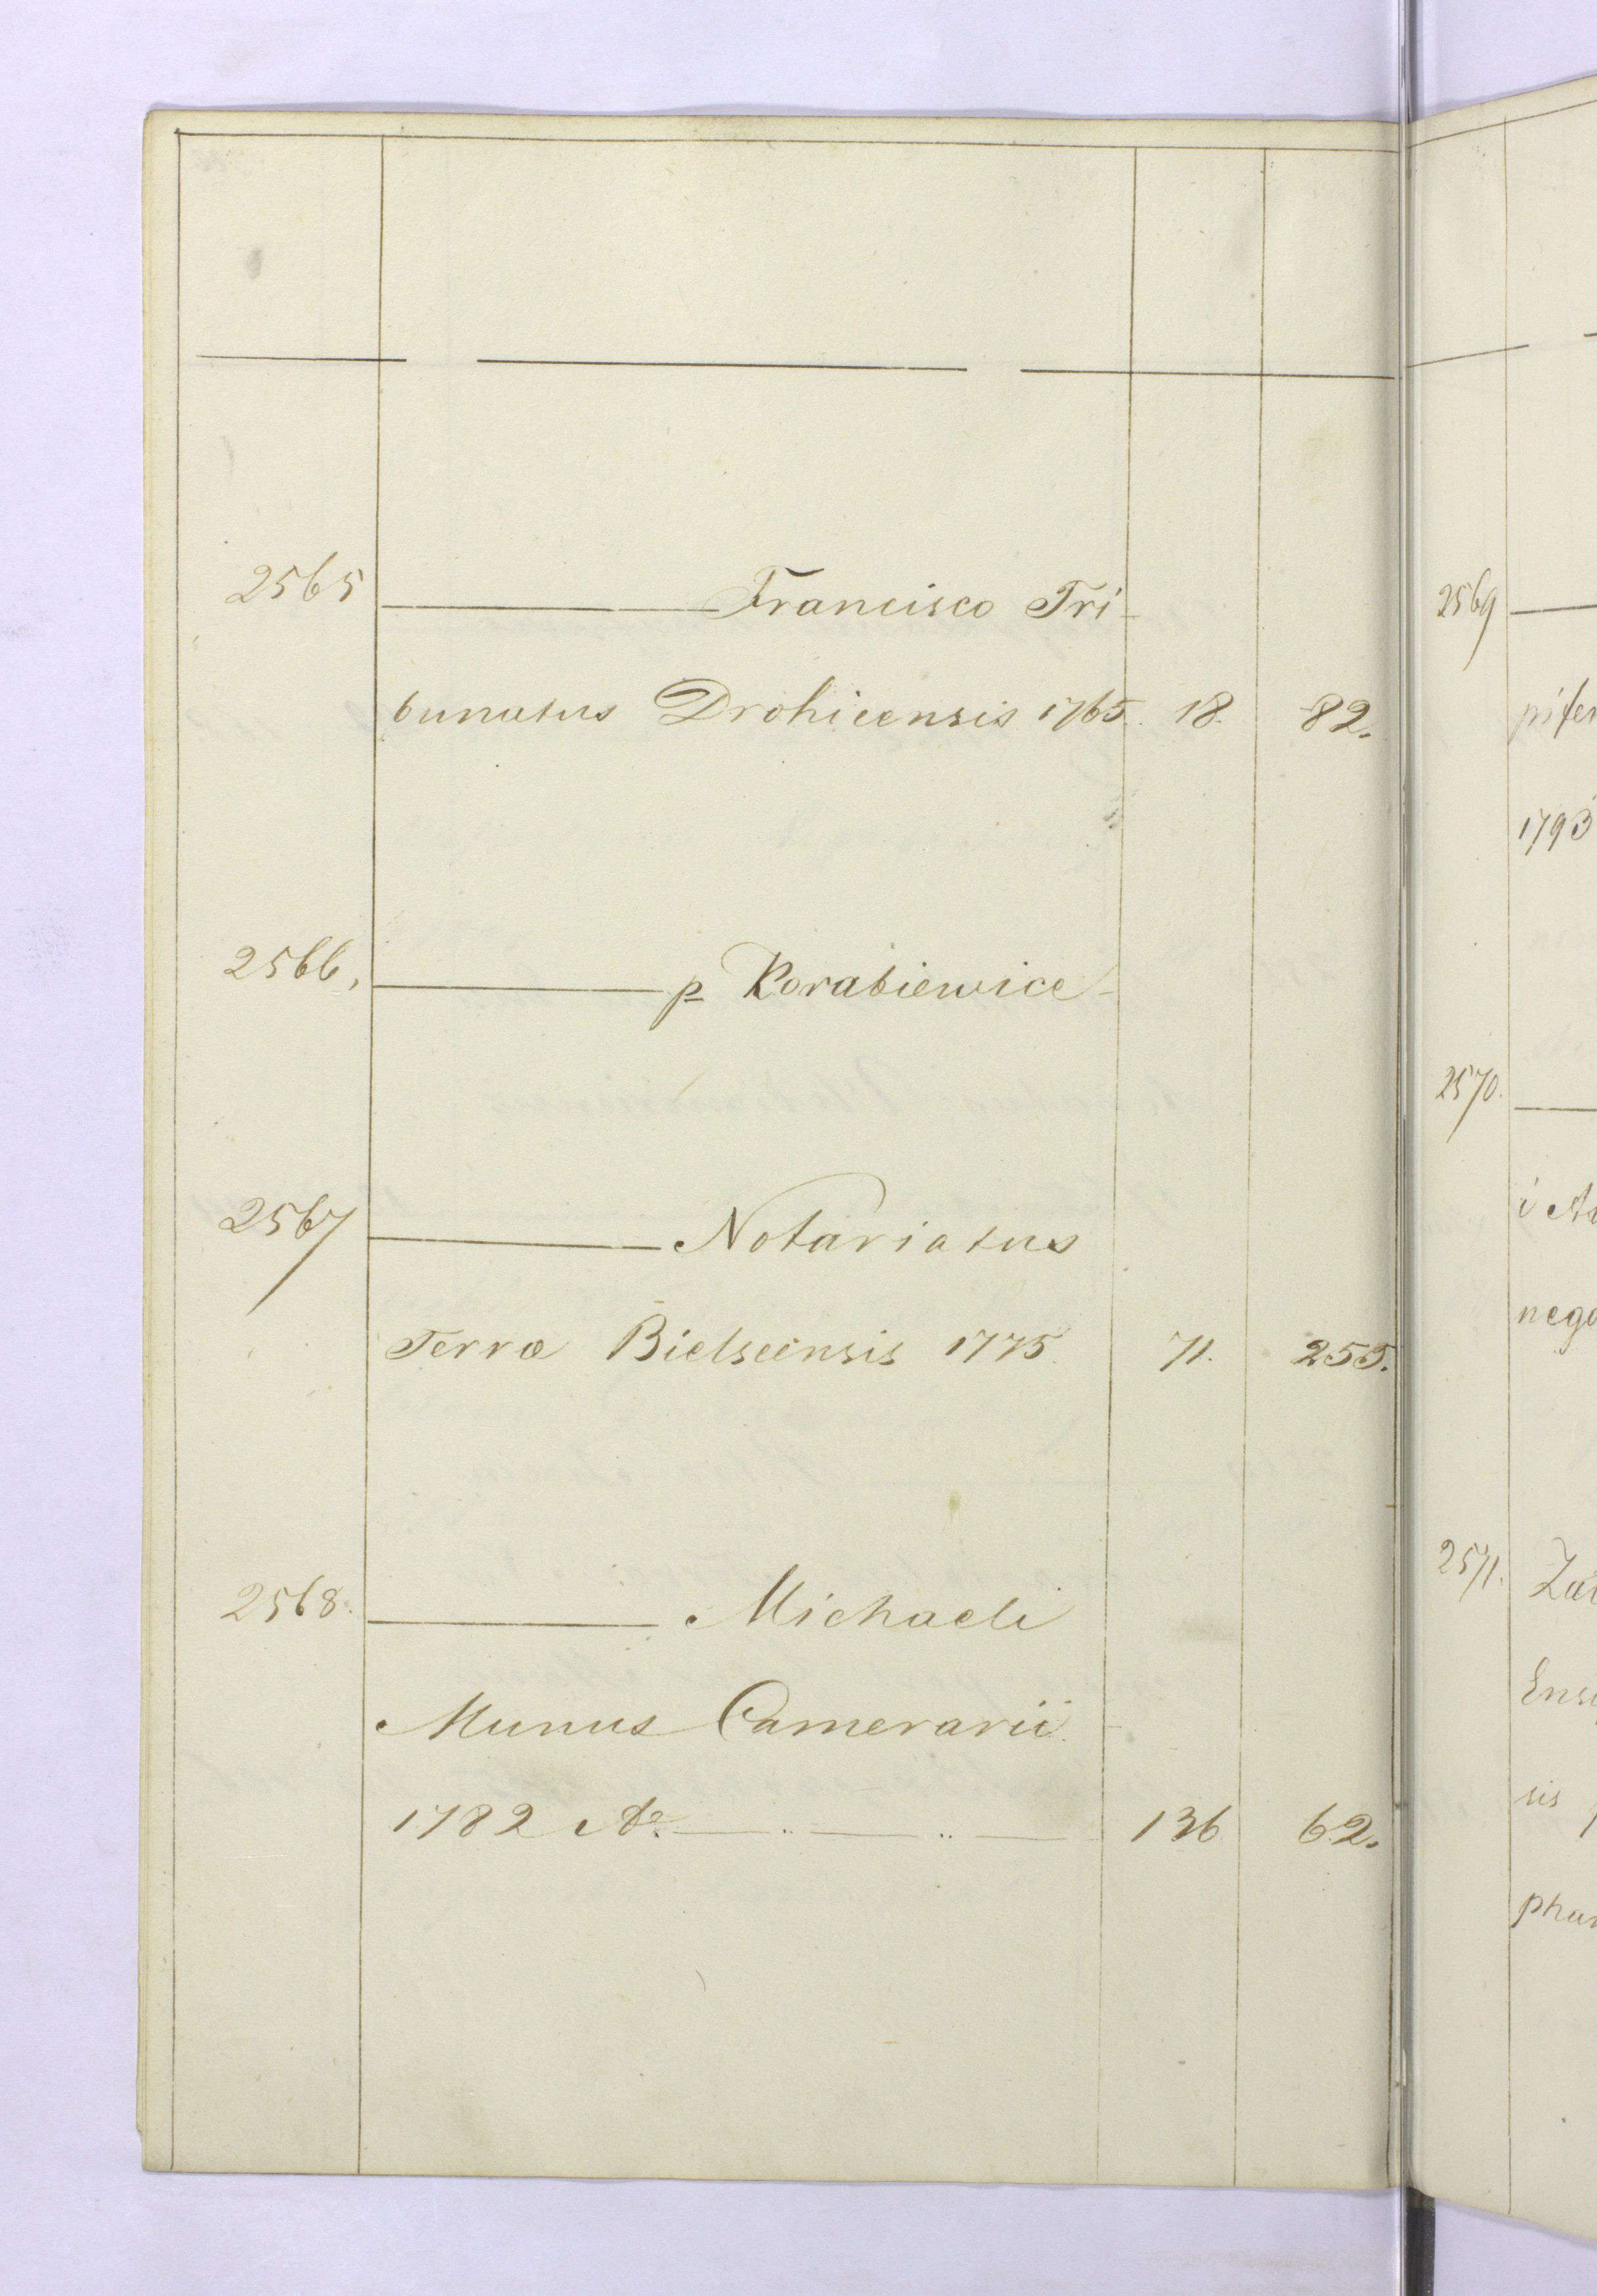 2565 ——— Francisco Tri-
bunatus Drohicensis 1765. 18. 82.
2566, ——— p Korabiewice
2567 ——— Notariatus
Terræ Bielscensis 1775. 71. 255.
2568. ——— Michaeli
Munus Camerarii
1782 Ao. — .. — .. — 136 62.
2569 ———
pifer
1793
2570. ———
nego
2571. Za
Ensi
sis p
phan